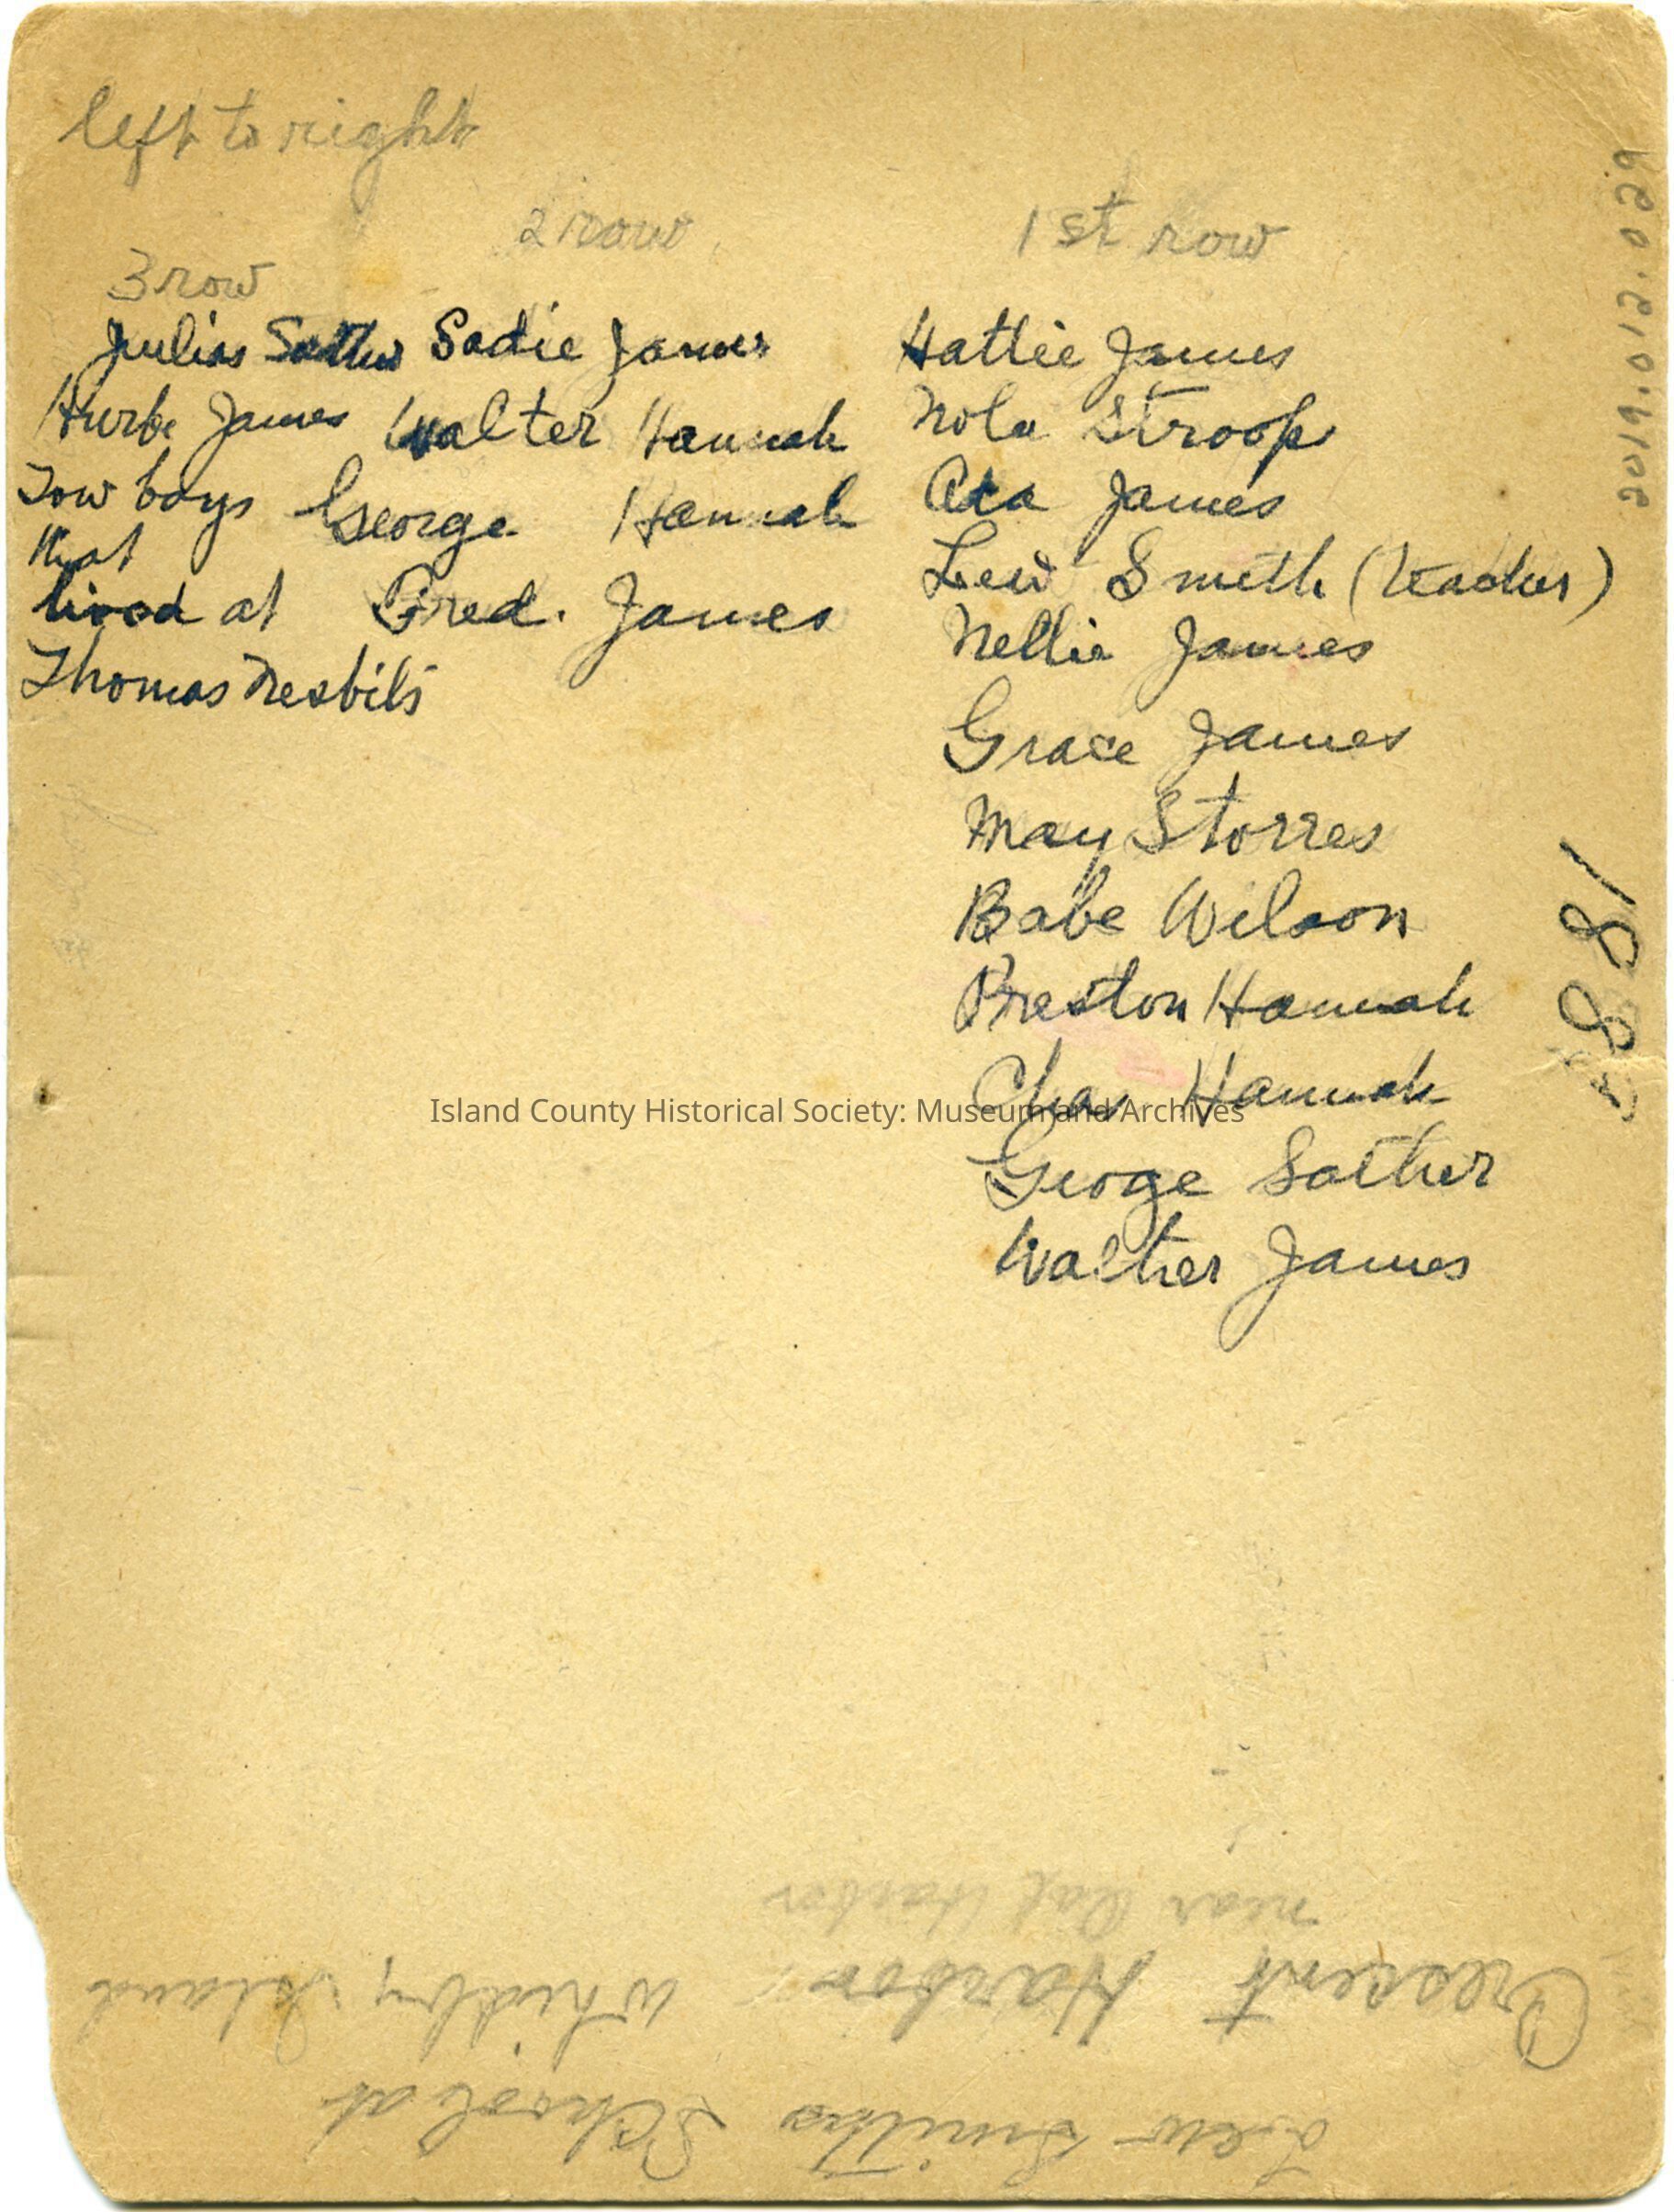 left to right
3 row
Julias Sather
Hurbe James
Tow boys
that
lived at
Thomas Nesbits
2 row
Sadie James
Walter Hannah
George Hannah
Fred. James
1st row
Hattie James
Nola Stroop
Ada James
Lew Smith (teacher)
Nellie James
Grace James
May Storres
Babe Wilson
Preston Hannah
Chas Hannah
Geoge Sather
Walter James
2019.012.029
188
Island County Historical Society: Museum and Archives
Lew Smiths School at
Crescent Harbor Whidby Island
near Oak Harbor